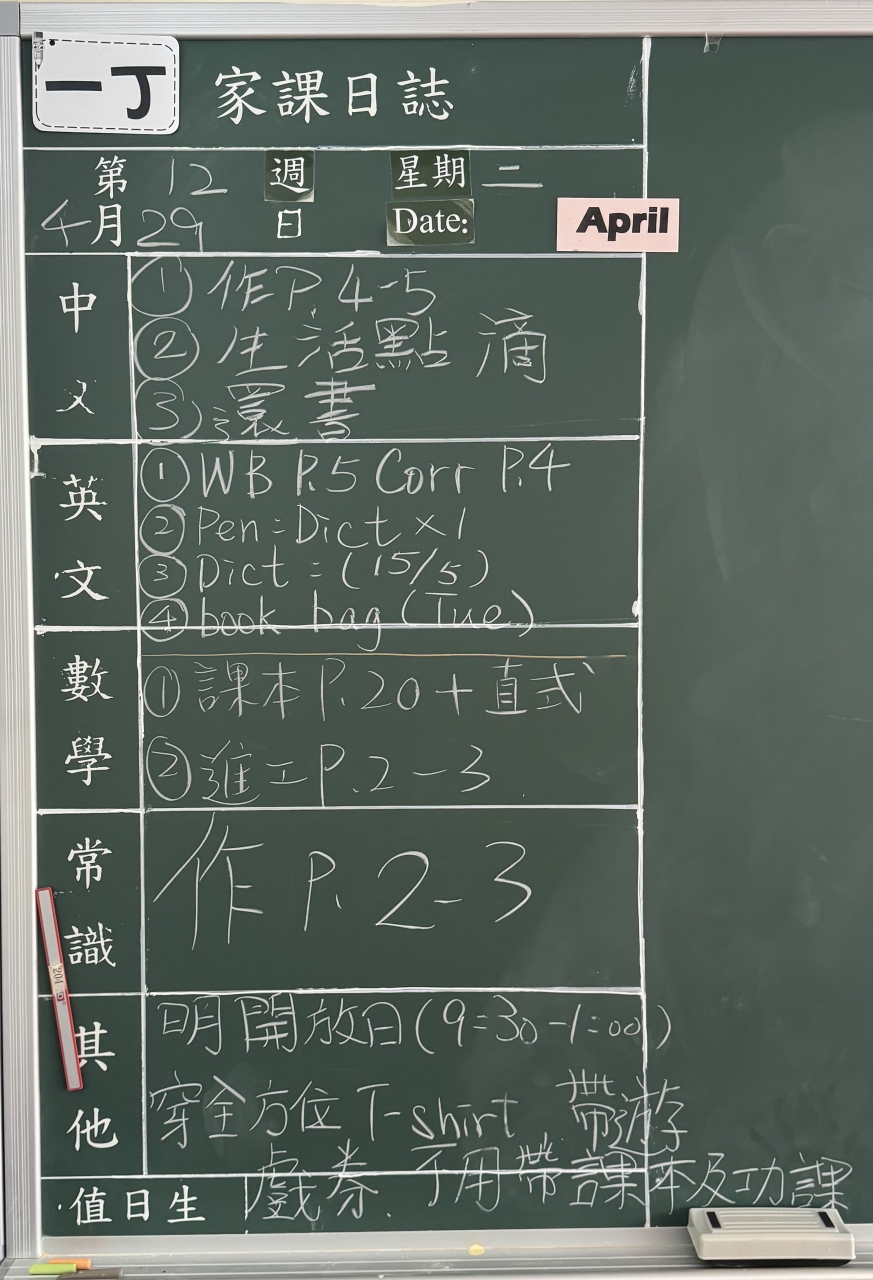 一丁 家課日誌
第 12 週 星期 二
4月29日 Date: April
中文
① 作P.4-5
② 生活點滴
③ 還書
英文
① WB P.5 Corr P.4
② Pen: Dict x1
③ Dict: (15/5)
④ book bag (Tue)
數學
① 課本P.20+直式
② 進工P.2-3
常識
作P.2-3
其他
明開放日(9:30-1:00)
穿全方位T-shirt 帶遊
戲券. 不用帶課本及功課
值日生